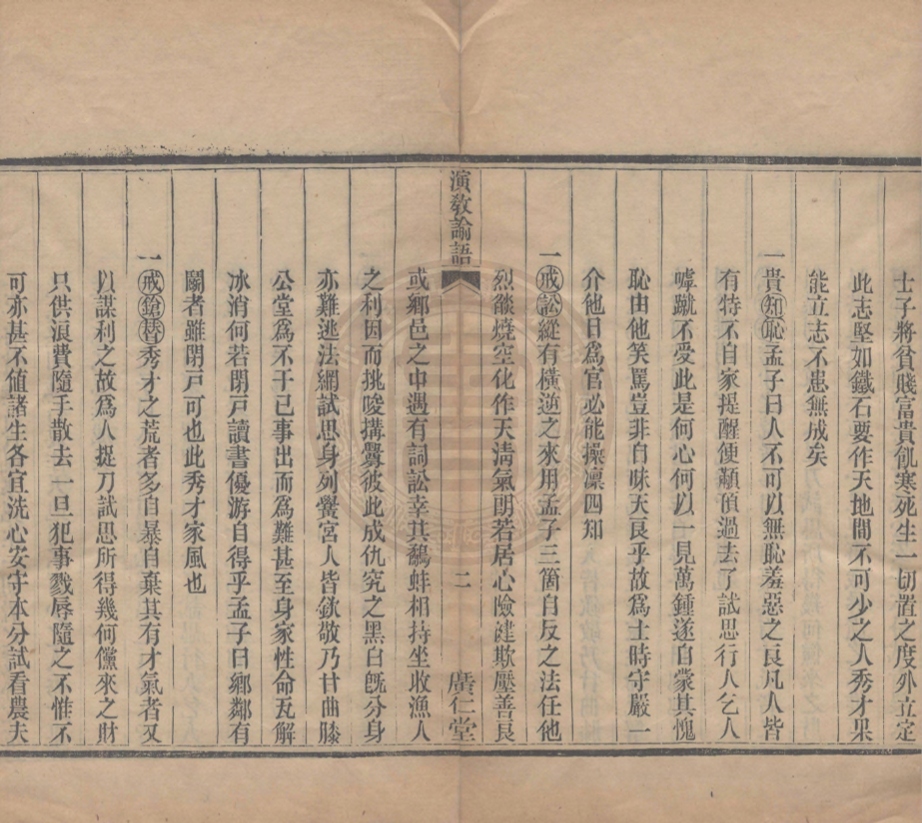 士子將貧賤富貴飢寒死生一切置之度外立定
此志堅如鐵石要作天地間不可少之人秀才果
能立志不患無成矣
一貴知恥孟子曰人不可以無恥羞惡之良凡人皆
有特不自家提醒便顢頇過去了試思行人乞人
嘑蹴不受此是何心何以一見萬鍾遂自蒙其愧
恥由他笑罵豈非自昧天良乎故爲士時守嚴一
介他日爲官必能操凛四知
一戒訟縱有橫逆之來用孟子三箇自反之法任他
烈燄燒空化作天淸氣朗若居心險健欺壓善良
演敎諭語
二
廣仁堂
或鄉邑之中遇有詞訟幸其鷸蚌相持坐收漁人
之利因而挑唆搆釁彼此成仇究之黑白旣分身
亦難逃法網試思身列黌宮人皆欽敬乃甘曲膝
公堂爲不干己事出而爲難甚至身家性命瓦解
冰消何若閉戸讀書優游自得乎孟子曰鄉鄰有
鬬者雖閉戸可也此秀才家風也
一戒鎗替秀才之荒者多自暴自棄其有才氣者又
以謀利之故爲人捉刀試思所得幾何儻來之財
只供浪費隨手散去一旦犯事戮辱隨之不惟不
可亦甚不値諸生各宜洗心安守本分試看農夫